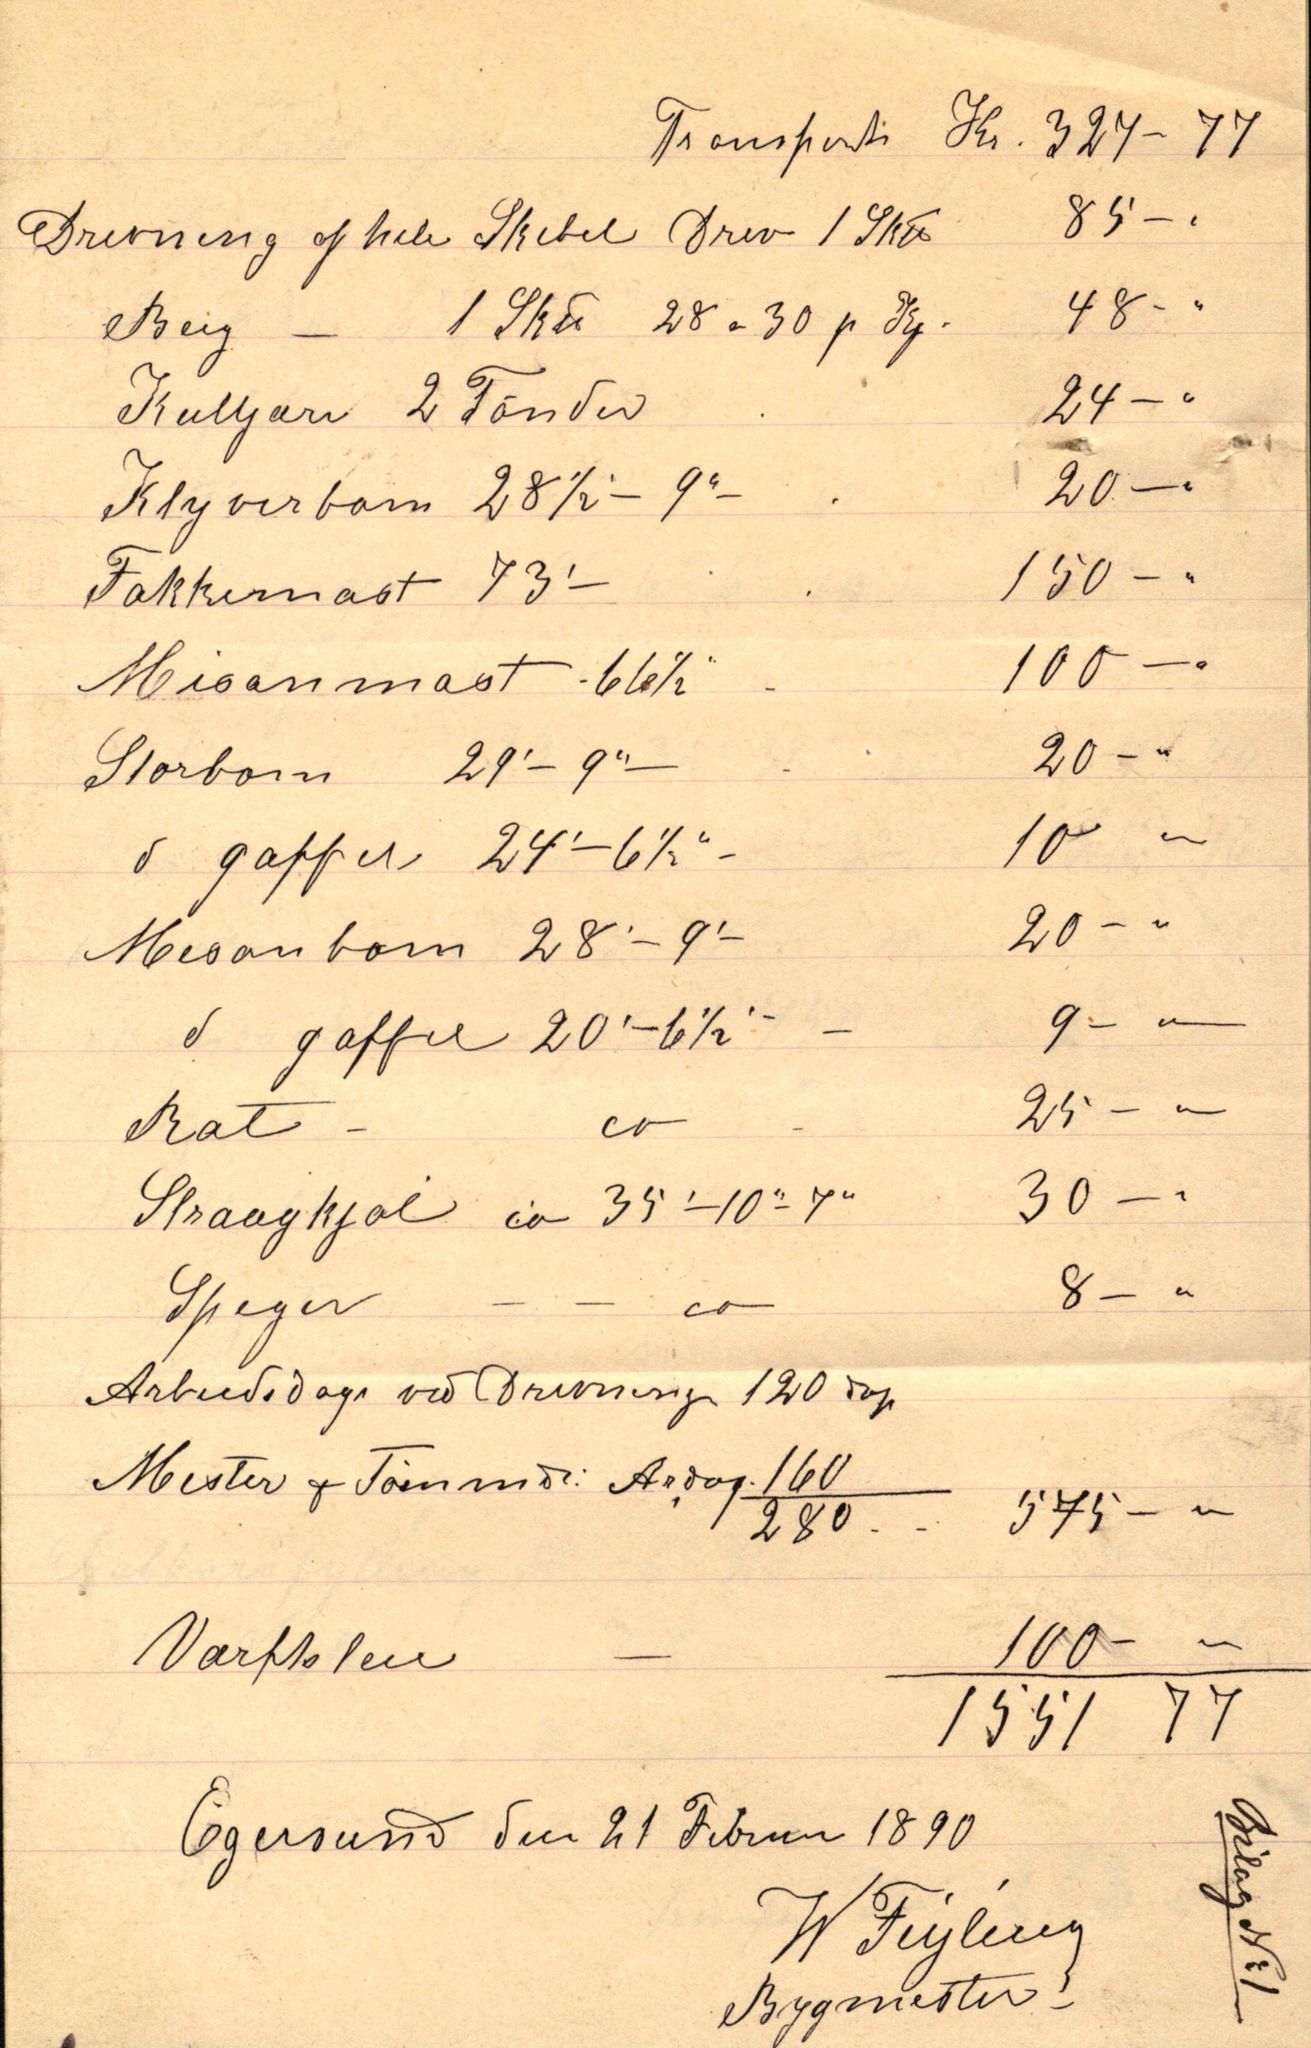 Transport Kr. 327 - 77
Drevning af hele Skibet Drev 1 Sk℔ 85 - "
Beig — 1 Sk℔ 28 a 30 p Kg. 48 - "
Kultjære 2 Tönder 24 - "
Klyverbom 28 1/2' - 9" - 20 - "
Fokkemast 73' - 150 - "
Misanmast 66 1/2' - 100 - "
Storbom 29' - 9" - 20 - "
d gaffel 24' - 6 1/2" - 10 "
Mesanbom 28' - 9' - 20 - "
d gaffel 20' - 6 1/2' - — 9 - "
Rat - ca - 25 - "
Straagkjøl ca 35' - 10" - 7" 30 - "
Speger — — ca 8 - "
Arbeidsdage ved Drevning 120 dage
Mester & Tömmdr: Ardag. 160
280 - - 575 - "
Værftsleie — 100 - "
1551 77
Egersund den 21 Februar 1890
W Feyling
Bygmester
Bilag No 1